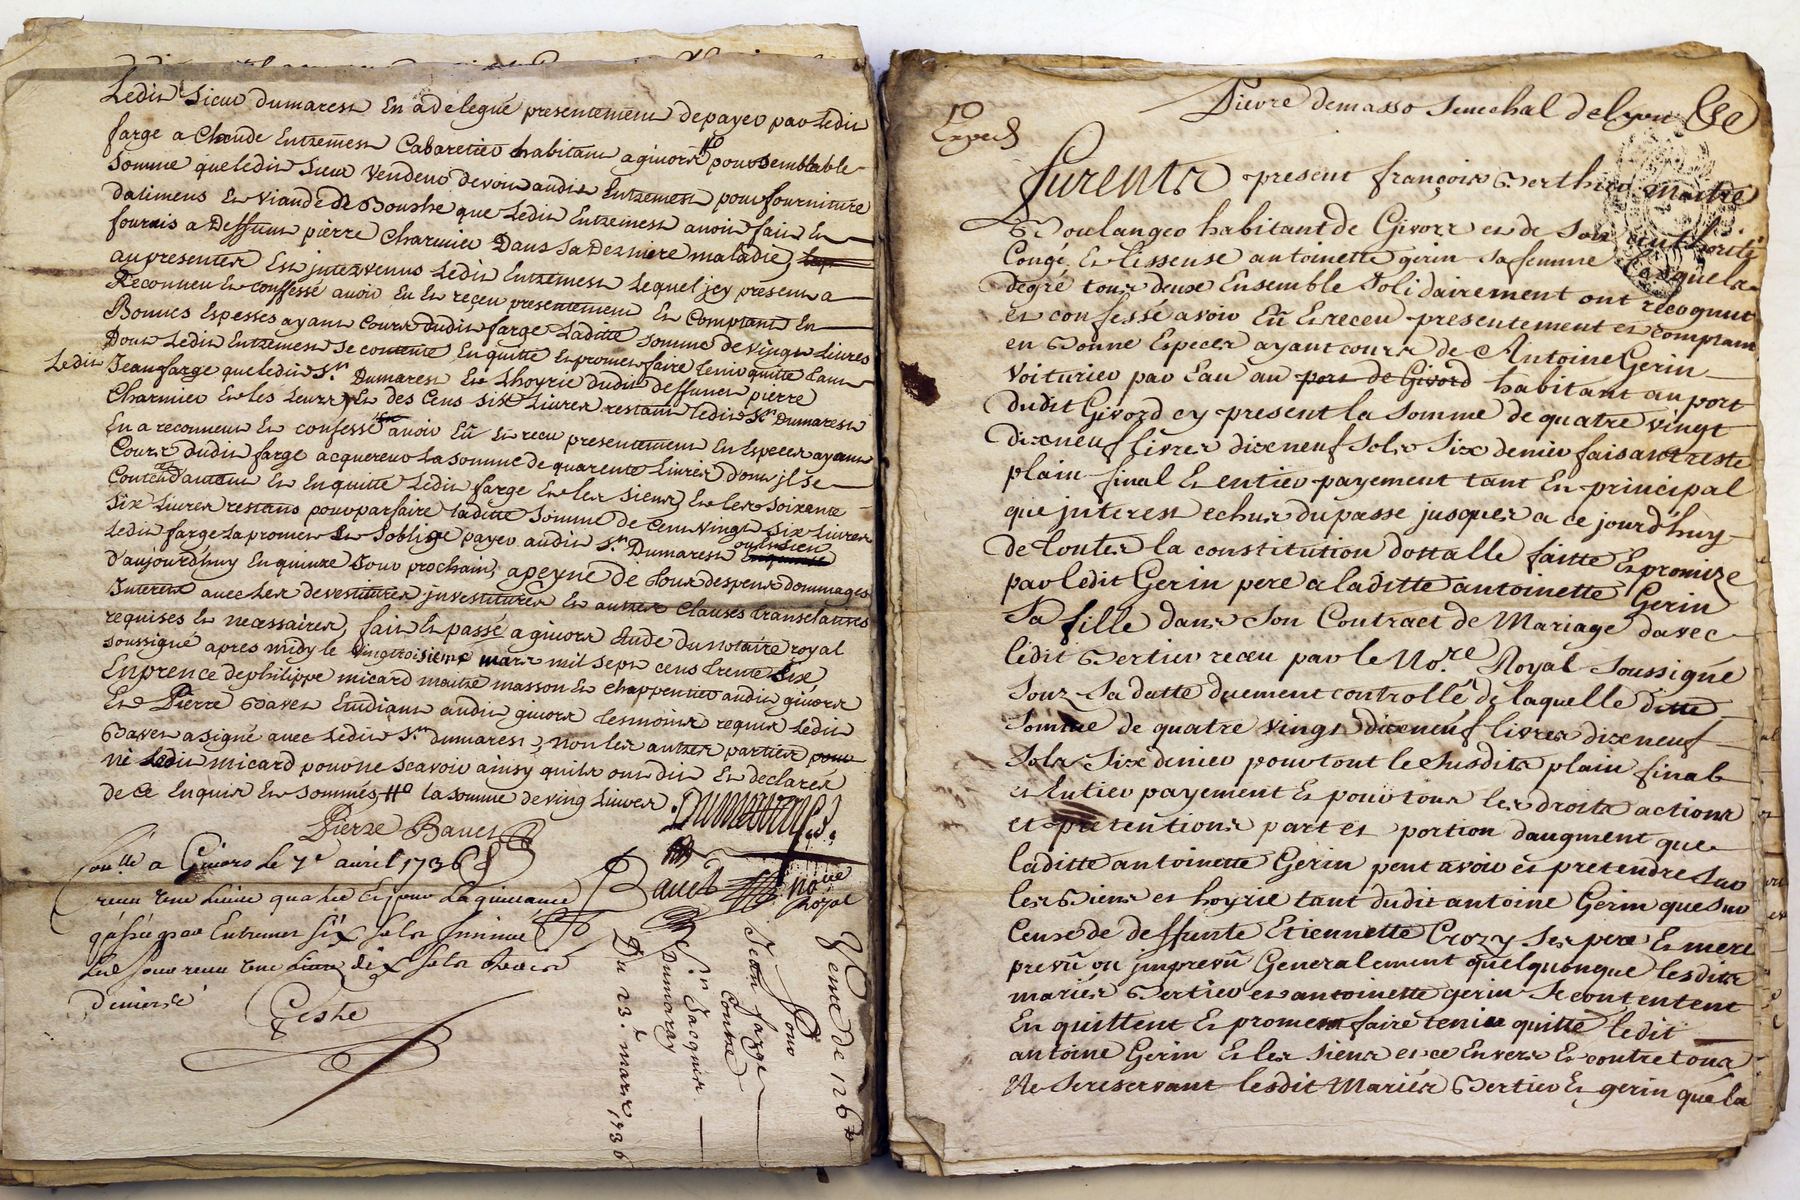 Ledit Sieur Dumarest En a delegué presentement depayer par Ledit
farge a Claude Entremest Cabaretier habitant a givors pour semblable
Somme que ledit Sieur Vendeur devoir audit Entremest pour fourniture
dalimens Et Viande de Boushe que Ledit Entremest avoit fait Et
fournis a Deffunt pierre Charmier Dans sa Derniere maladie,
au presenter Est intervenus Ledit Entremest Lequel jcy present a
Reconneu Et Confessé avoir Eu Et reçeu presentement Et Comptant En
Bonnes Espesses ayant Cours dudit farge Laditte Somme de Vingt Livres
Dont Ledit Entremest Se contente En quitte Et promet faire tenir quitte tant
Ledit Jean farge que ledit Sr. Dumarest Et Lhoyrie dudit deffunct pierre
Charmier Et les Leurs, Et des Cens Six Livres restant ledit Sr. Dumarest
En a reconneut Et confessé avoir Eû Et receu presentement En Especes ayant
Cours dudit farge acquereur La somme de quarente Livres dont jl se
Contend Et En quitte Ledit farge Et les Siens, Et les Soixante
Six Livres restans pour parfaire laditte Somme de Cent Vingt Six Livres
Ledit farge La promet Et Soblige payer audit Sr. Dumarest ou Es Siens
d'aujourd'huy En quinze Jour prochain, a peyne de tous despens dommages
Interest avec Les devestitures jnvestitures Et autres Clauses translatives
requises Et necessaires, fait Et passé a givors Etude du notaire royal
soussigné apres midy le Vingttroisieme mars mil sept cens trente Six
En presence de philippe micard maitre masson Et charpentier audit givors
Et Pierre Bavet Etudiant audit givors tesmoins requis Ledit
Bavet a signé avec Ledit Sr. Dumarest, non les autres parties
ni Ledit micard pour ne scavoir ainsy quils ont dit Et declarés
de Ce Enquis Et Sommés, la somme de ving Livres
Dumarest
Pierre Bavet
a Givors le 7e avril 1736
receu Une Livre quatre Et pour La quittance
passée par Entremet Six Sols
Bavet nore
Royal
Geshe
Du 23e mars 1736
Sr. Jacques
Dumaray
Contre
Jean farge
Pour
Vente de 126
Pierre demasso Senechal de Lyon &c
Exped
Furents present françois Berthier Maitre
Boulanger habitant de Givors et de Son authorité
Congé Et lissense antoinette gerin Sa femme Lesquels
degré tous deux Ensemble Solidairement ont recognut
et confessé avoir Eû Et receu presentement et comptant
en Bonne Especes ayant cours de Antoine Gerin
Voiturier par Eau au port de Givord habitant au port
dudit Givord cy present la Somme de quatre vingt
dixneuf livres dixneuf Sols Six denier faisant reste
plain final Et entier payement tant En principal
que jnterest echus du passe jusques a ce jourd'huy
de toutes la constitution dottalle faitte Et promize
par ledit Gerin pere a laditte antoinette Gerin
Sa fille dans Son Contract de Mariage davec
ledit Bertier receu par le No.re Royal Soussigné
Souz Sa datte duement controllé de laquelle ditte
Somme de quatre vingt dixneuf livres dixneuf
Sols Six denier pour tout le Susdits plain final
et Entier payement Et pour tous les droits actions
et pretentions part et portion daugment que
laditte antoinette Gerin peut avoir et pretendre Sur
les Biens et hoyrie tant dudit antoine Gerin que Sur
Ceux de deffunte Etiennette Crozy Ses pere Et mere
prevû ou jmprevû Generalement quelquonque lesdits
mariés Bertier et antoinette gerin Se contentent
En quittent Et promettent faire tenir quitte ledit
antoine Gerin Et les Siens et ce Envers Et contre tous
Ne Se reservant lesdit Mariés Bertier Et gerin que la